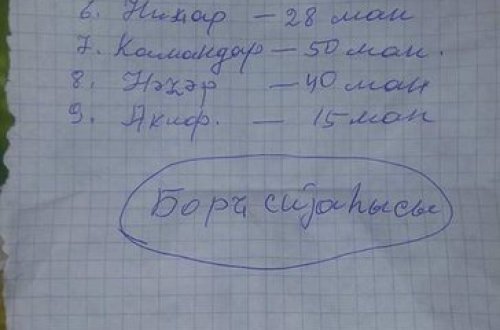 6. Нигар — 28 ман
7. Камандар — 50 ман.
8. Нəзəр — 40 ман
9. Акиф. — 15 ман
Борҹ сијаһысы